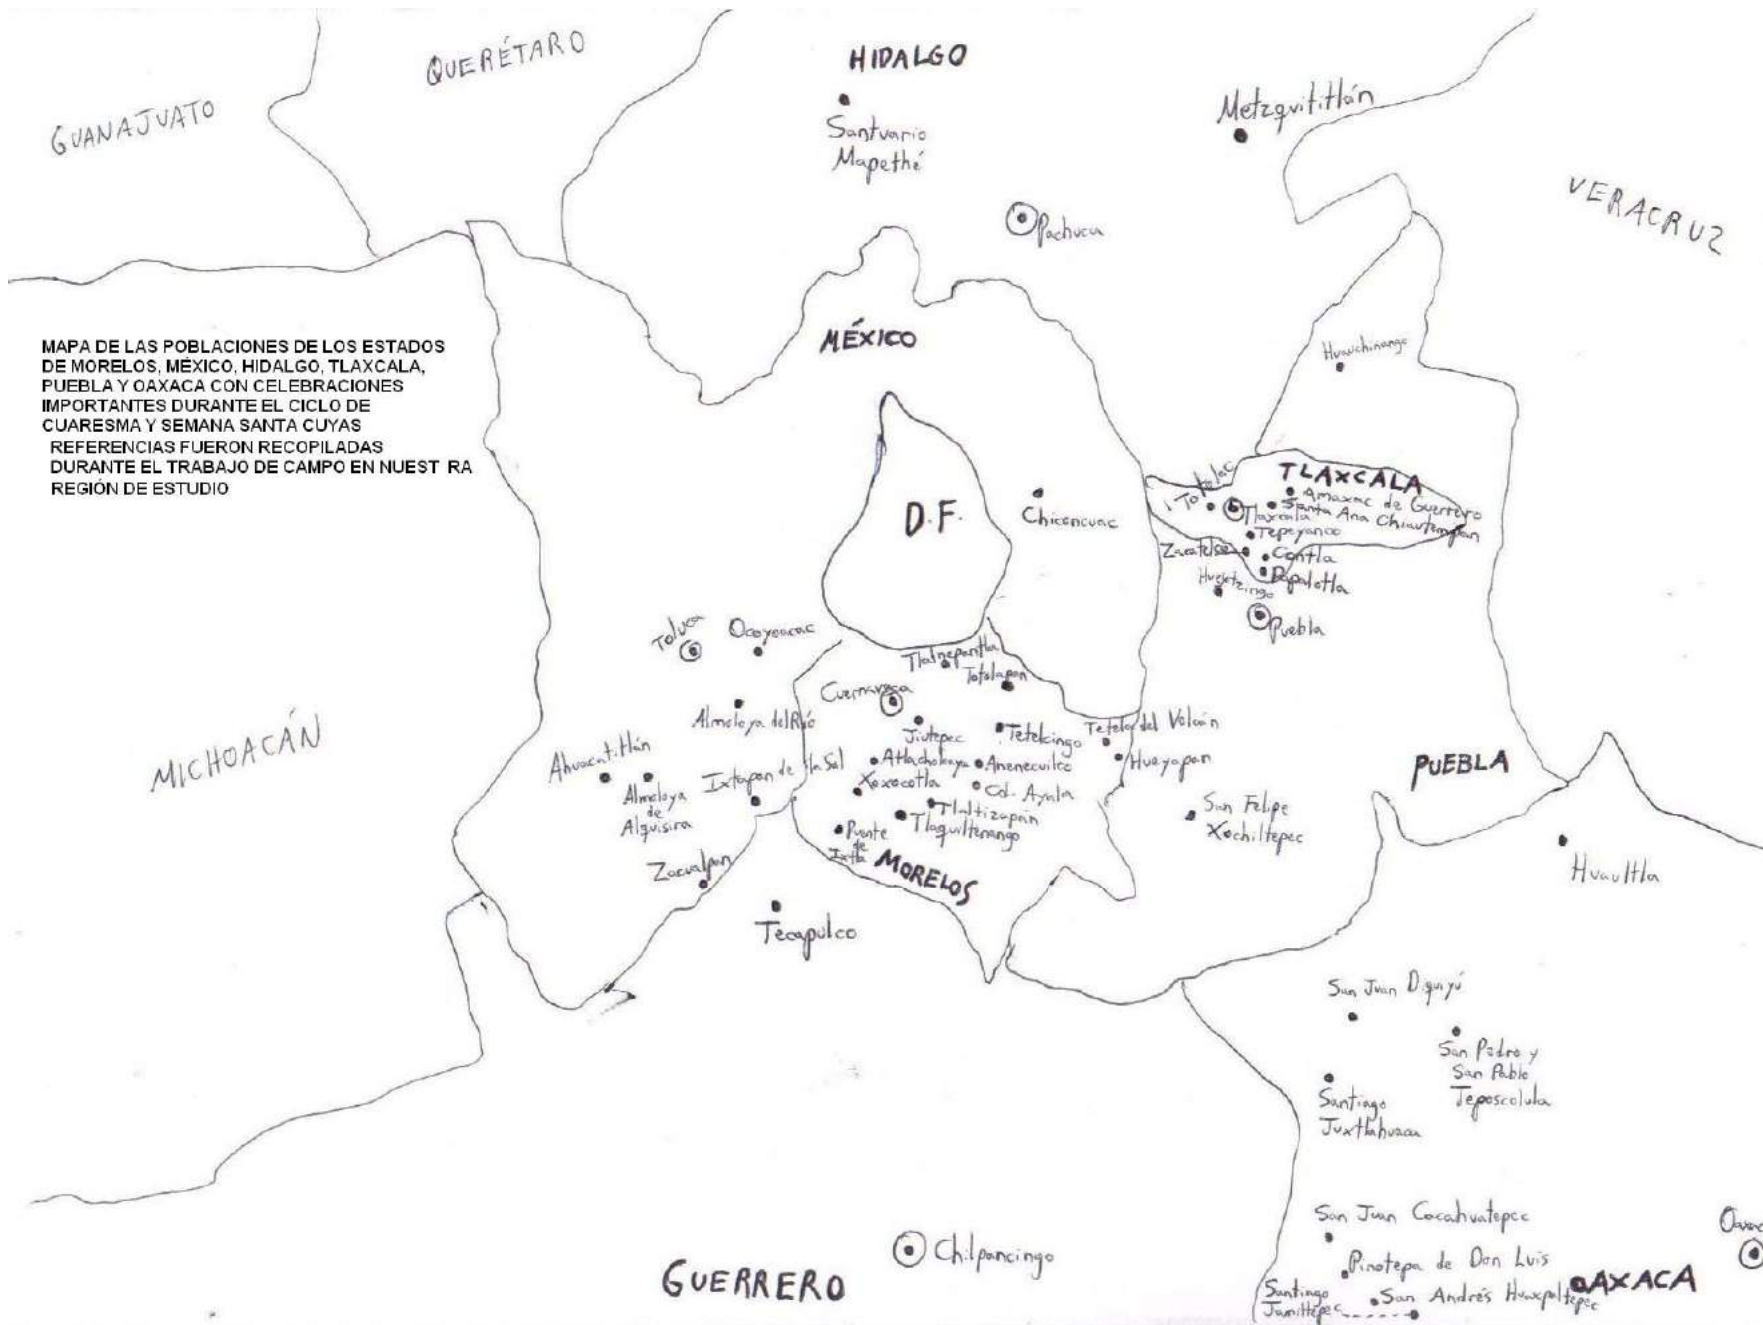 GUANAJUATO
QUERÉTARO
HIDALGO
Santuario
Mapethé
Metzquititlán
Pachuca
VERACRUZ
MÉXICO
MAPA DE LAS POBLACIONES DE LOS ESTADOS
DE MORELOS, MÉXICO, HIDALGO, TLAXCALA,
PUEBLA Y OAXACA CON CELEBRACIONES
IMPORTANTES DURANTE EL CICLO DE
CUARESMA Y SEMANA SANTA CUYAS
REFERENCIAS FUERON RECOPILADAS
DURANTE EL TRABAJO DE CAMPO EN NUEST RA
REGIÓN DE ESTUDIO
Huauchinango
D.F.
Chiconcuac
TLAXCALA
Totolac
Amaxac de Guerrero
Tlaxcala
Santa Ana Chiautempan
Tepeyanco
Zacatelco
Contla
Papalotla
Huejotzingo
Puebla
Toluca
Ocoyoacac
Tlalnepantla
Totolapan
Cuernavaca
Almoloya del Río
Jiutepec
Tetelcingo
Tetela del Volcán
Ahuacatitlán
Ixtapan de la Sal
Atlacholoaya
Anenecuilco
Hueyapan
PUEBLA
MICHOACÁN
Almoloya
de
Alquisira
Xoxocotla
Cd. Ayala
Tlaltizapán
Tlaquiltenango
San Felipe
Xochiltepec
Puente
de
Ixtla
MORELOS
Zacualpan
Huaultla
Tecapulco
San Juan Diquiyú
San Pedro y
San Pablo
Teposcolula
Santiago
Juxtlahuaca
San Juan Cacahuatepec
Oaxac
Chilpancingo
Pinotepa de Don Luis
GUERRERO
OAXACA
Santiago
Jamiltepec
San Andrés Huaxpaltepec